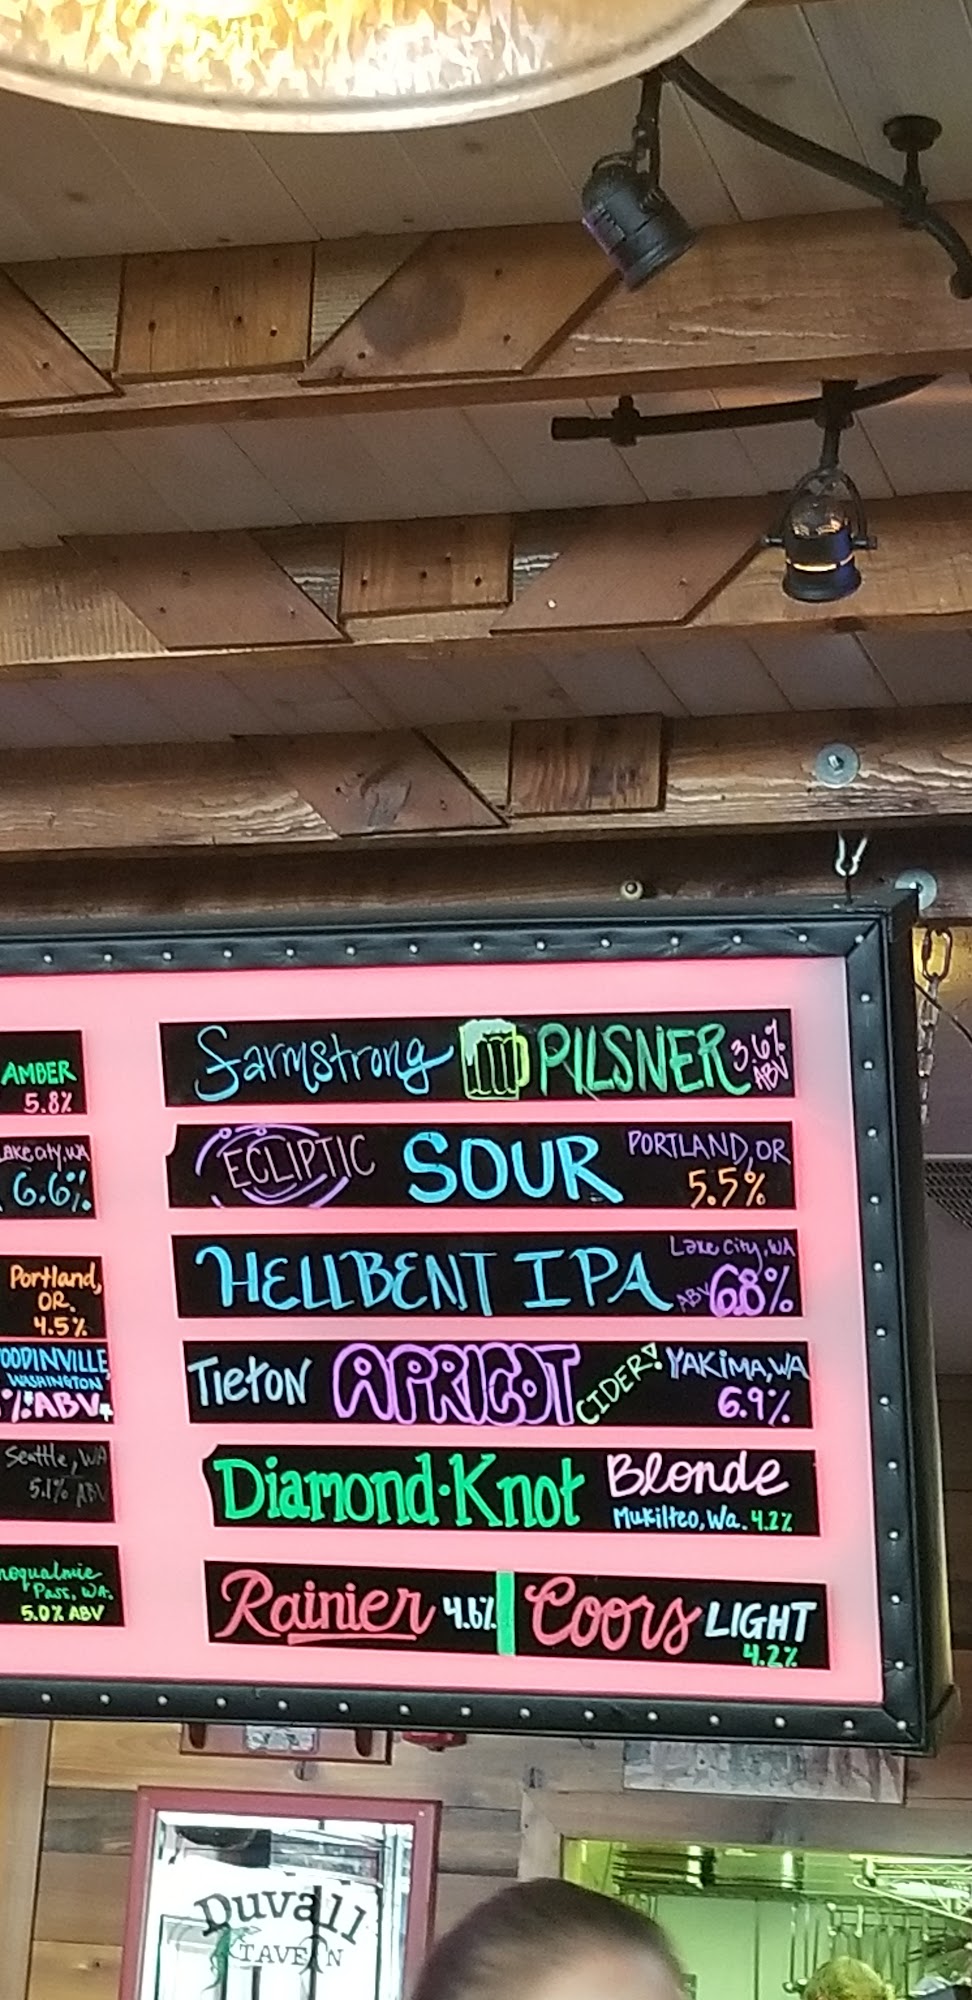 AMBER
5.8%
Lake City, WA
6.6%
Portland,
OR.
4.5%
OODINVILLE,
WASHINGTON
% ABV
Seattle, WA
5.1% ABV
noqualmie
Pass, WA.
5.0% ABV
Farmstrong PILSNER 3.6%
ABV
ECLIPTIC SOUR PORTLAND, OR
5.5%
HELLBENT IPA Lake City, WA
ABV 6.8%
TIETON APRICOT CIDER! YAKIMA, WA
6.9%
Diamond·Knot Blonde
Mukilteo, Wa. 4.2%
Rainier 4.6% Coors LIGHT
4.2%
Duvall
TAVERN